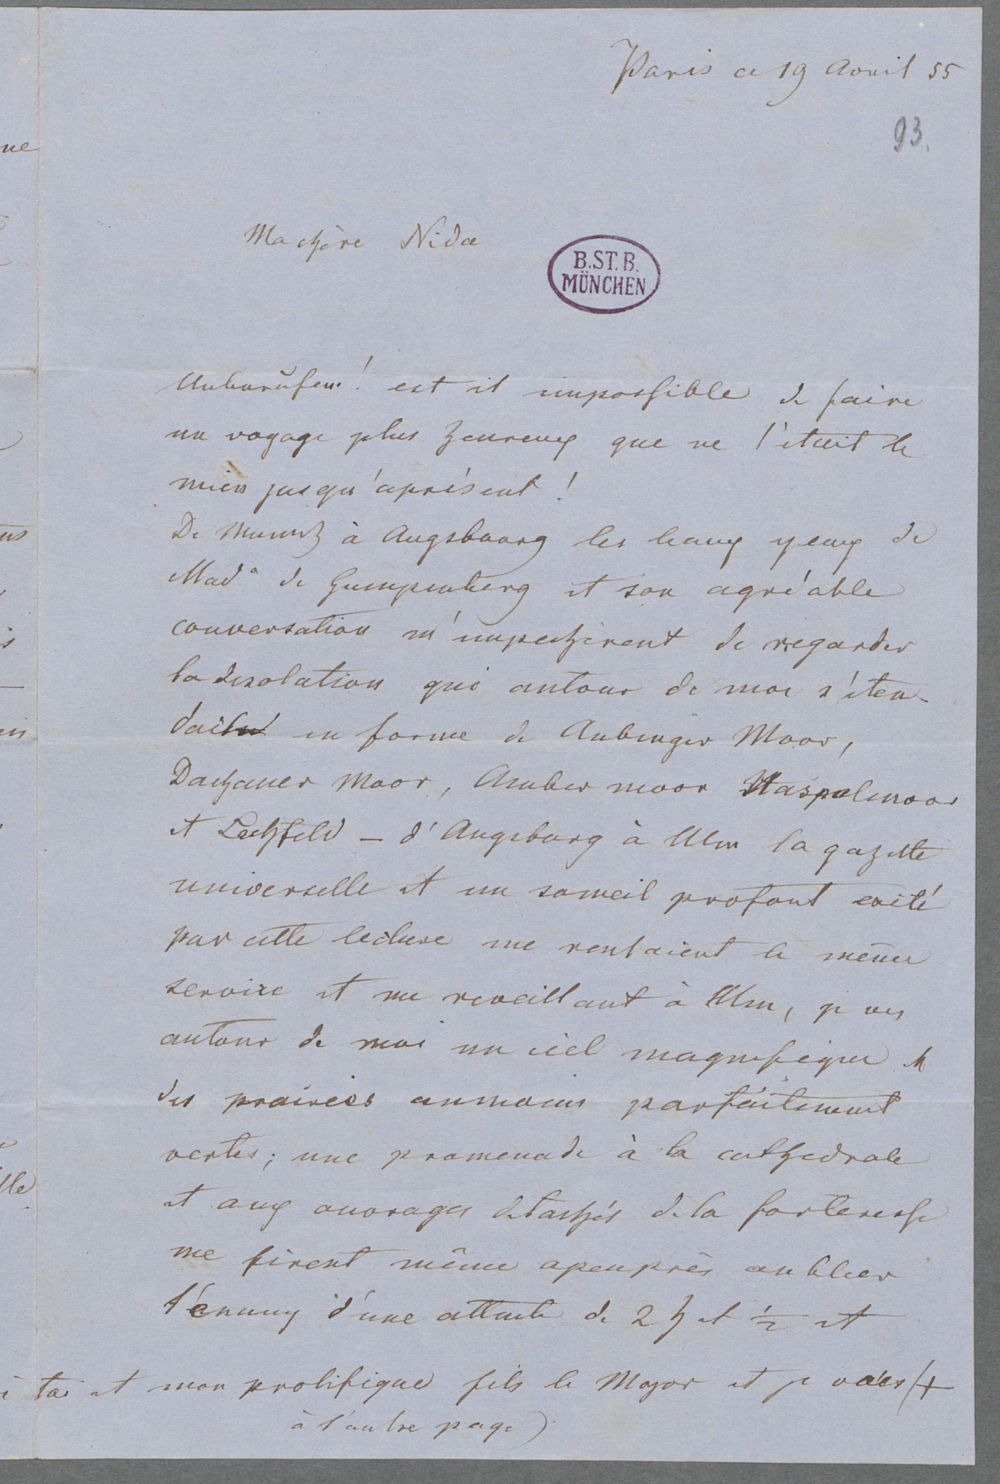 Paris ce 19 Avril 55
93.
Ma chère Nida
B.ST.B.
MÜNCHEN
Unberufen! est il impossible de faire
un voyage plus heureux que ne l'était le
mien jusqu'aprésent!
De Munich à Augsbourg les beaux yeux de
Mad. de Gumpenberg et son agréable
conversation m'empechèrent de regarder
la desolation qui autour de moi s'éten-
dait en forme de Aubinger Moor,
Dachauer Moor, Amber moor Haspelmoor
et Lechfeld – d'Augsburg à Ulm la gazette
universelle et un someil profont exité
par cette lecture me rentaient le même
service et me reveillant à Ulm, je vis
autour de moi un ciel magnifique et
des prairies aumoins parfaitement
vertes; une promenade à la cathedrale
et aux ouvrages detachés de la forteresse
me firent même apeuprès oublier
l'ennuy d'une attente de 2 h et ½ et
à toi et mon prolifique fils le Major et je vous (+
à l'autre page)
ne
ns
is
in
lle